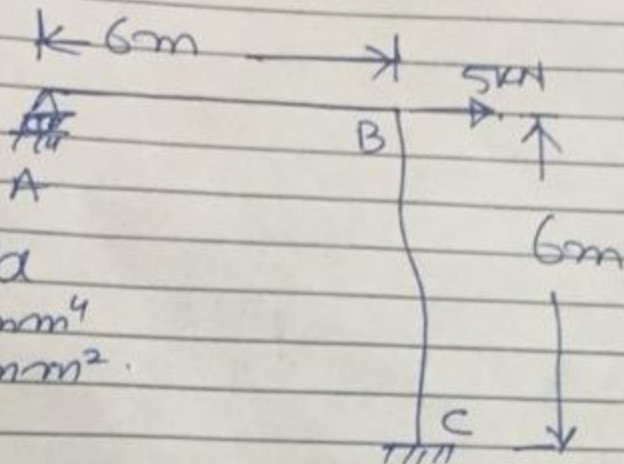 6m
5KN
B
A
6m
a
mm⁴
mm².
C